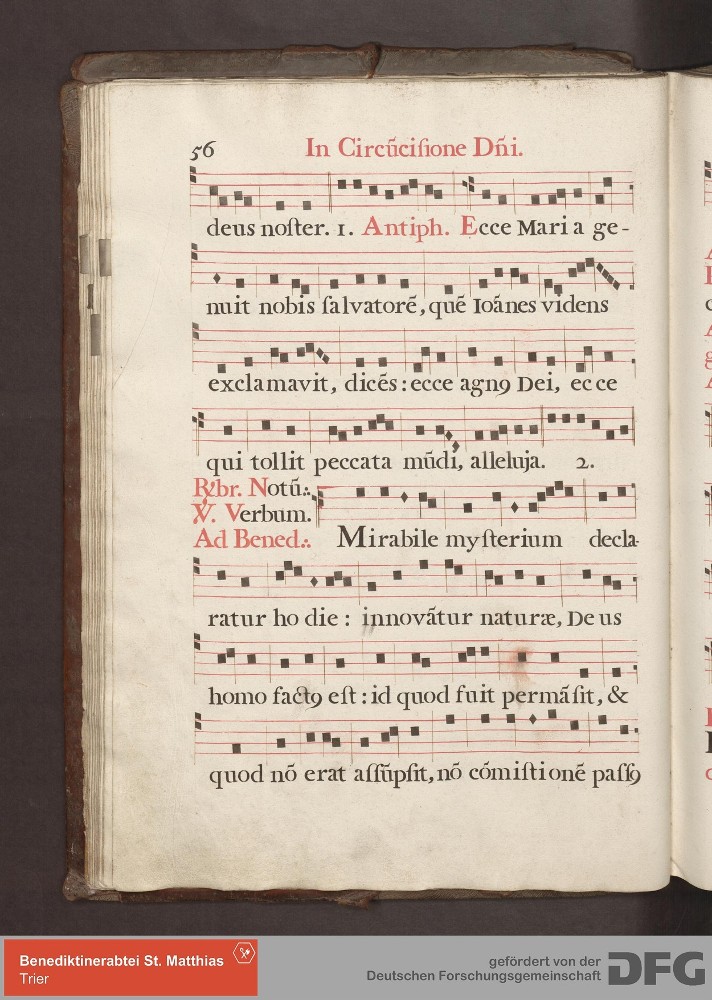 56 In Circũciſione Dñi.
deus noſter. 1. Antiph. Ecce Maria ge-
nuit nobis ſalvatorẽ, quẽ Ioãnes videns
exclamavit, dicẽs: ecce agnꝯ Dei, ecce
qui tollit peccata mũdi, alleluja. 2.
R̷br. Notũ.
V̷. Verbum.
Ad Bened. Mirabile myſterium decla-
ratur hodie: innovãtur naturæ, Deus
homo factꝯ eſt: id quod fuit permãſit, &
quod nõ erat aſſũpſit, nõ cõmiſtionẽ paſſꝯ
Benediktinerabtei St. Matthias
Trier
gefördert von der
Deutschen Forschungsgemeinschaft
DFG